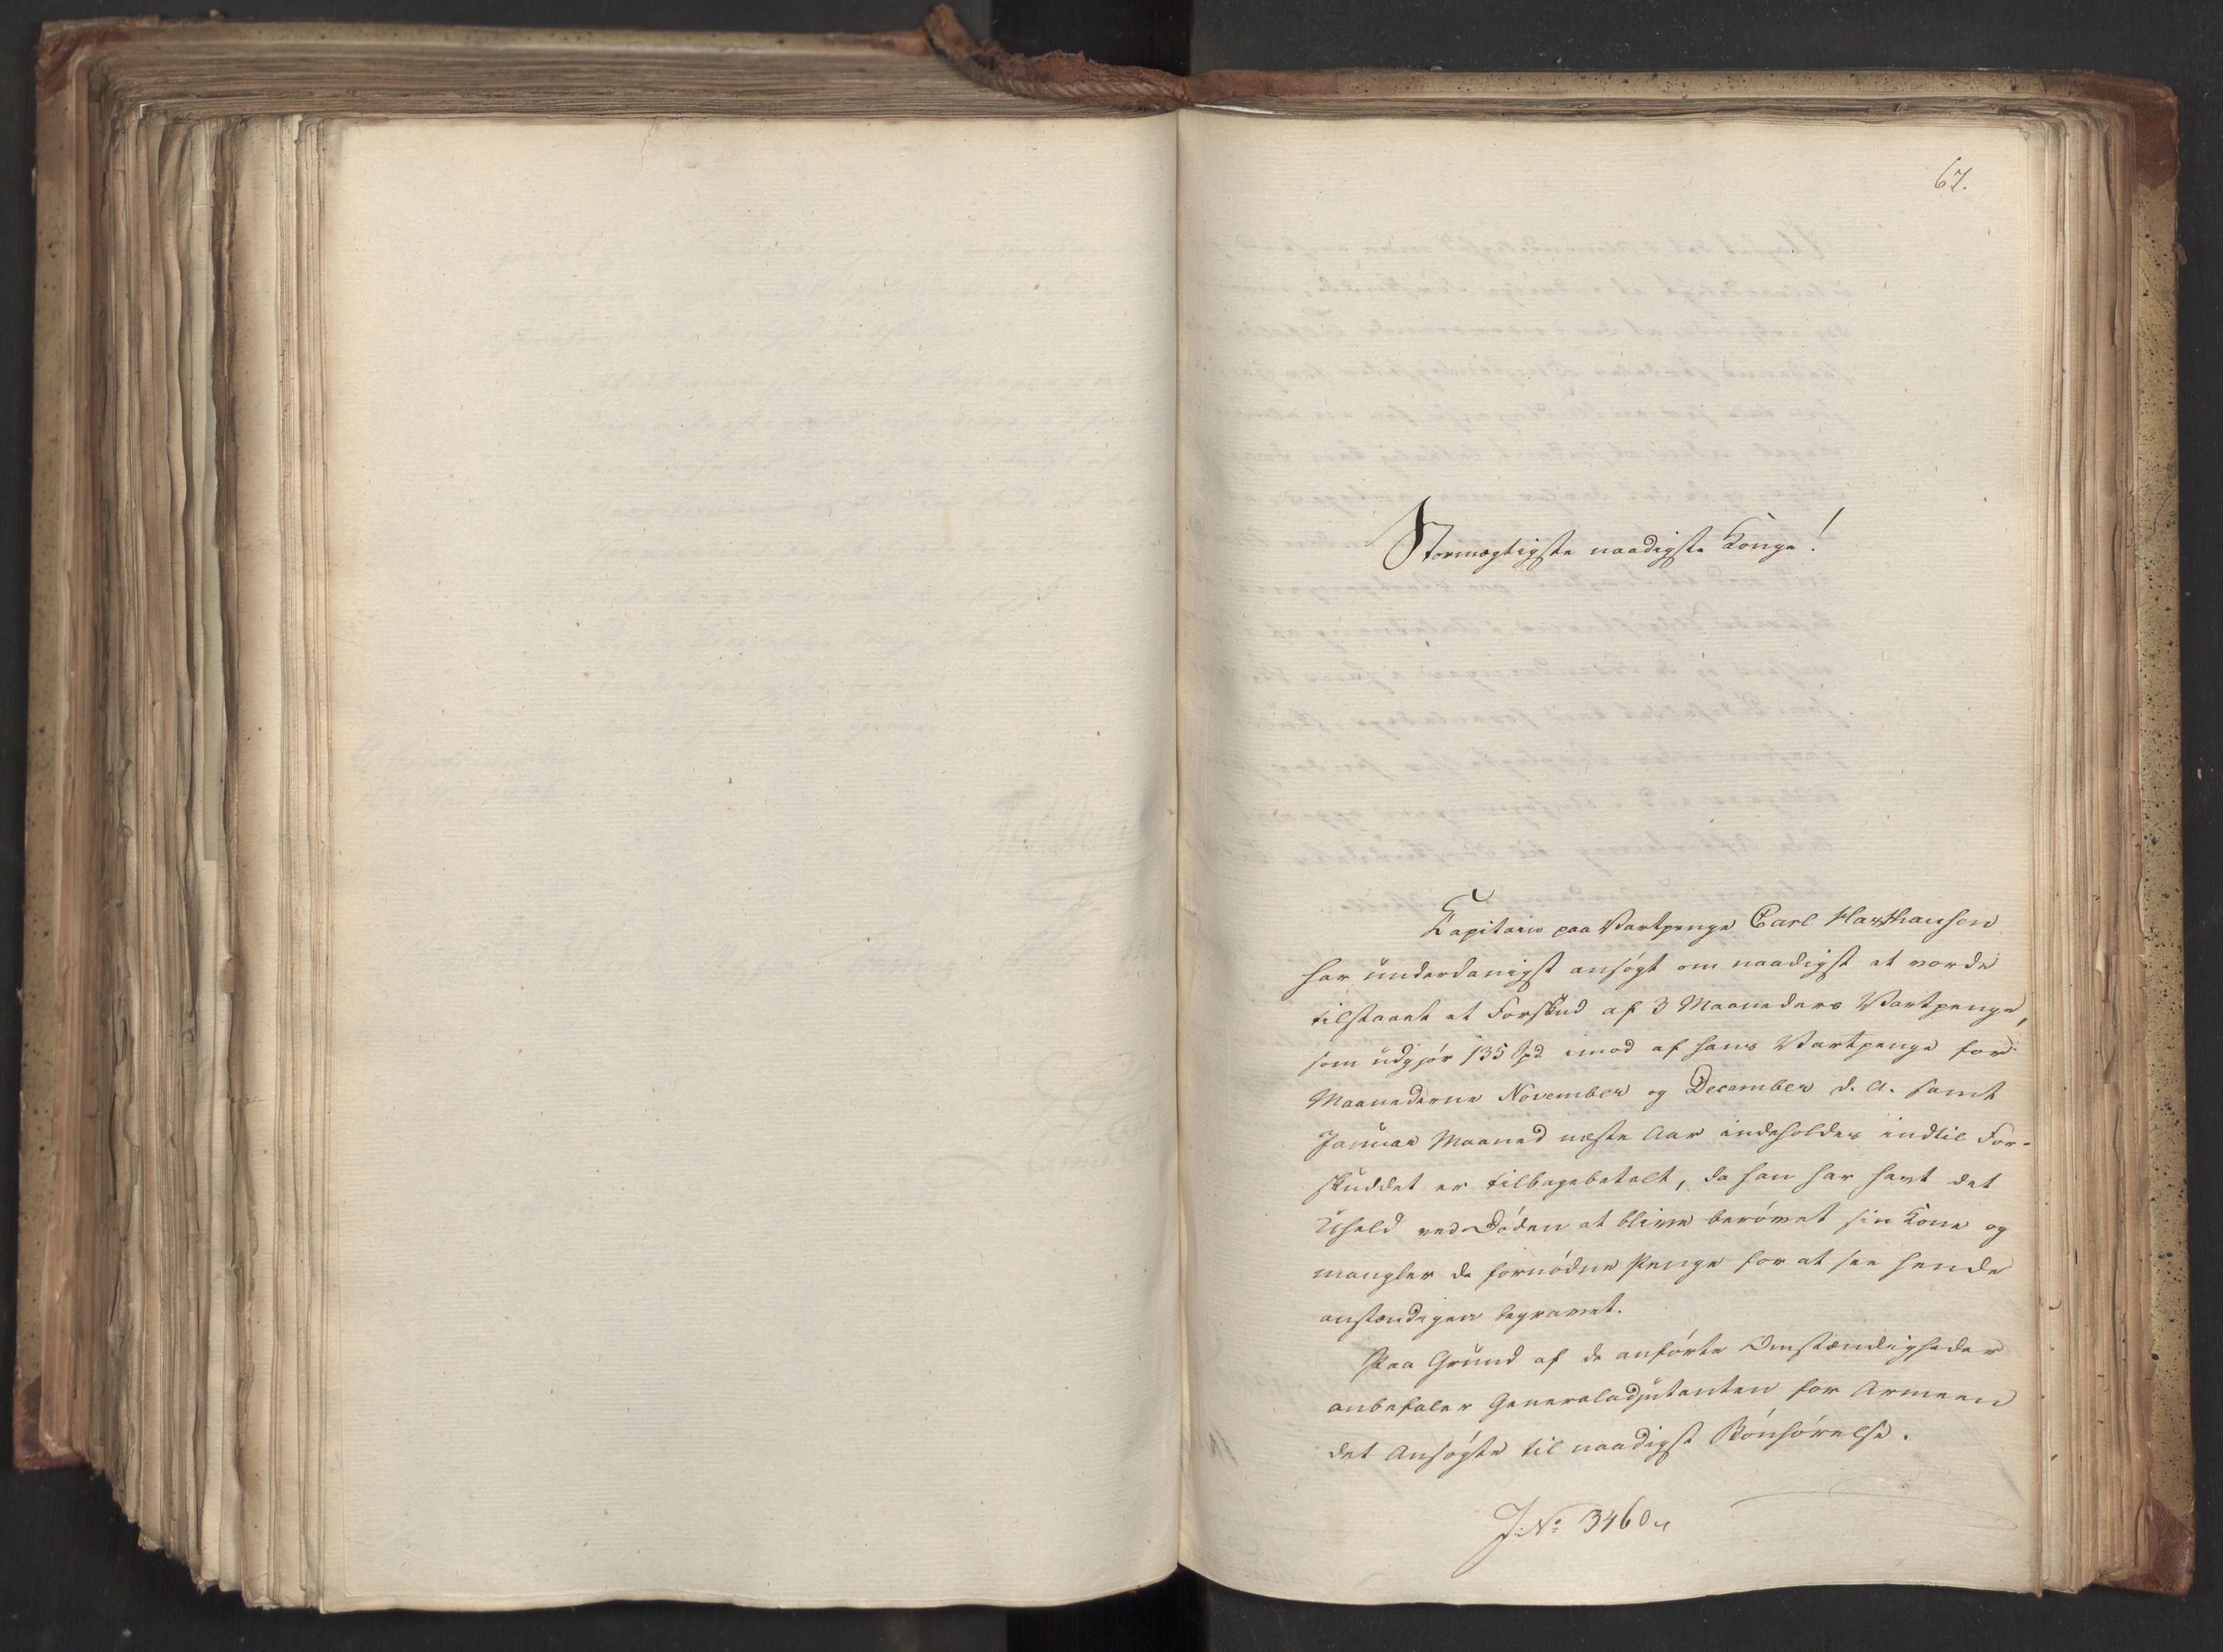 67.
Stormægtigste naadigste Konge!
Kapitain paa Vartpenge Carl Haxthausen
har underdanigst ansøgt om naadigst at vorde
tilstaaet et Forskud af 3 Maaneders Vartpenge,
som udgjør 135 Spd. imod af hans Vartpenge for
Maanederne November og December d. A. samt
Januar Maaned næste Aar indeholdes indtil For-
skuddet er tilbagebetalt, da han har havt det
Uheld ved Døden at blive berøvet sin Kone og
mangler de fornødne Penge for at see hende
anstændigen begravet.
Paa Grund af de anførte Omstændigheder
anbefaler Generaladjutanten for Armeen
det Ansøgte til naadigst Bønhørelse.
J. No 3460